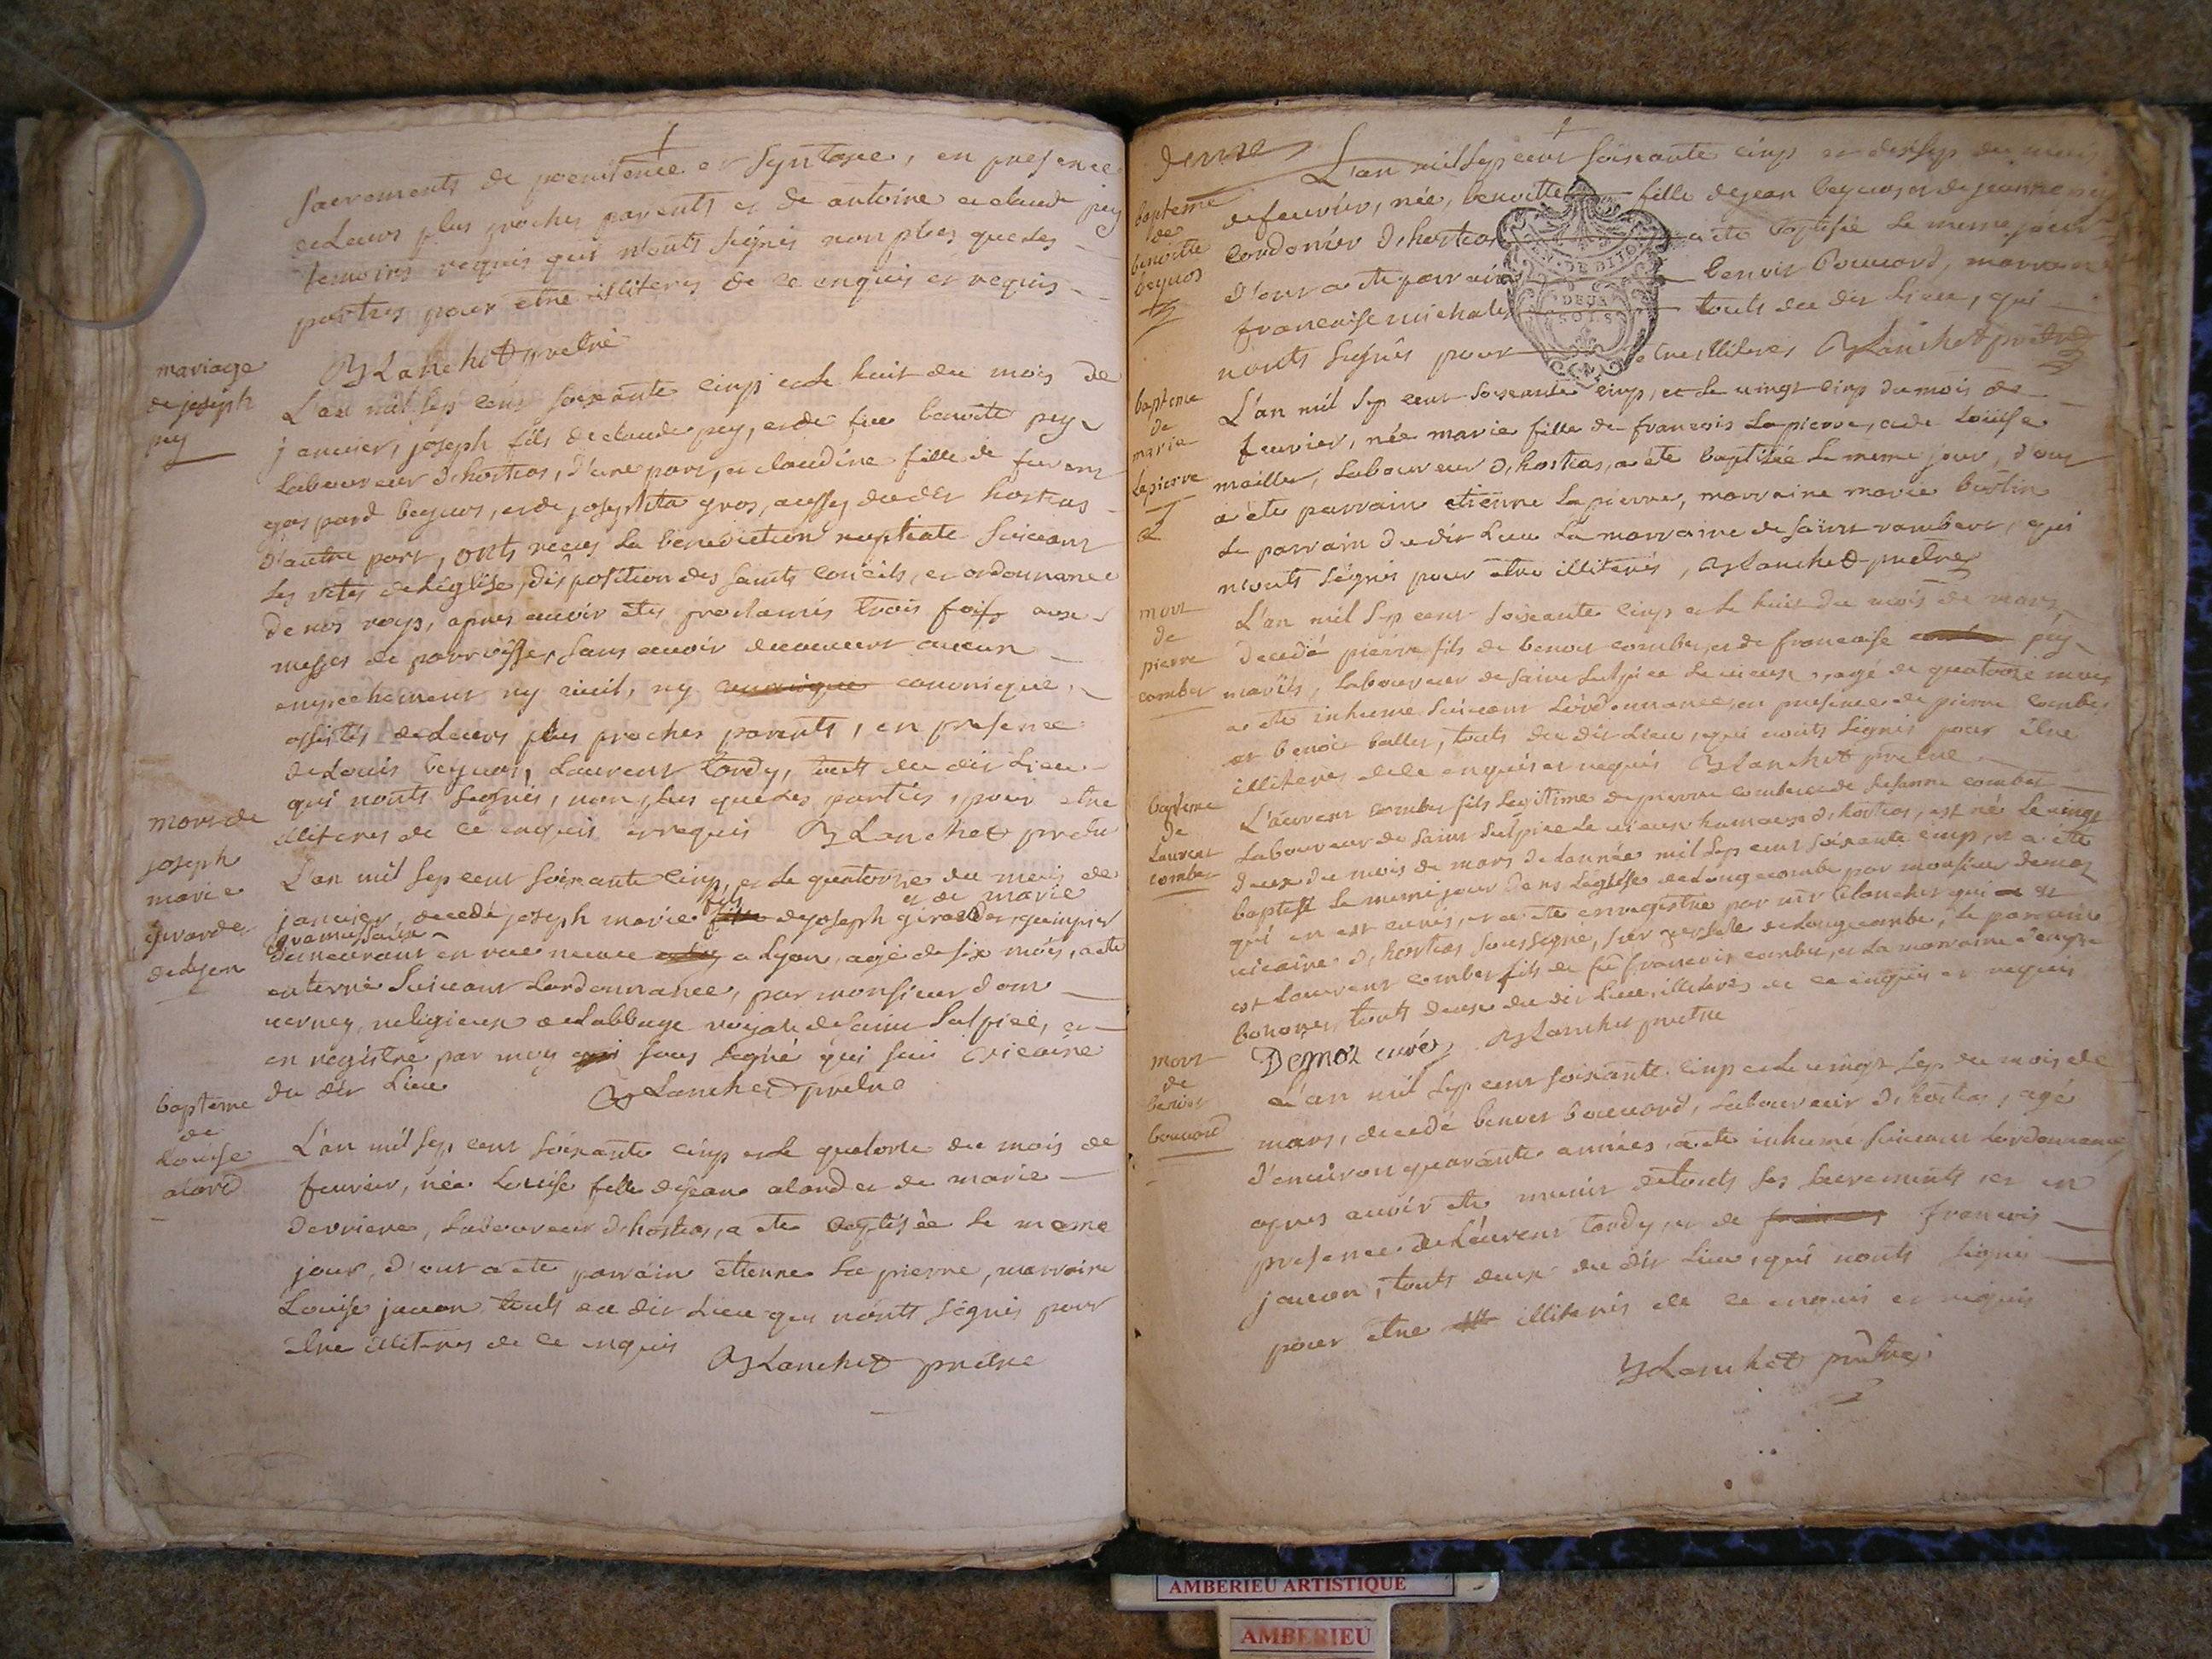 sacrements de poenitence et syntaxe, en presence
de Leurs plus proches parents et de antoine et claude pey
temoins requis qui n'onts signés non plus que Les
parties pour etre illiteres de ce enquis et requis
Blanchet pretre
mariage
de joseph
pey
L'an mil sep cent soixante cinq et le huit du mois de
janvier, joseph fils de claude pey, et de feu benoite pey
Laboureur d'hostias, d'une part, et claudine fille de feu
gaspard beguos, et de josephta gros, aussy du dit hostias
d'autre part, onts reçus La benediction nuptiale suivant
Les rites de L'église, disposition des saints conciles, et ordonnance
de nos roys, apres avoir étés proclamés trois fois aux
messes de parroisse, sans avoir decouvert aucun
empechement ny civil, ny canonique,
assistés de Leurs plus proches parents, en presence
de Louis beguos, Laurent tardy, touts du dit Lieu
qui nonts signés, non plus que Les parties, pour etre
illiteres de ce enquis et requis Blanchet pretre
mort de
joseph
marie
girarder
de Lyon
L'an mil sep cent soixante cinq, et le quatorze du mois de
janvier, decedé joseph marie fils de joseph girarder guimpier et de marie
gramussaux
demeurant en rue neuve a Lyon, agé de six mois, a eté
enterré suivant L'ordonnance, par monsieur dom
verney, religieux de L'abbaye royale de saint sulpice, et
en registré par moy sous signé qui suis vicaire
du dit Lieu Blanchet pretre
bapteme
de
Louise
alard
L'an mil sep cent soixante cinq et le quatorze du mois de
fevrier, née Louise fille de jean alard et de marie
derriere, Laboureur d'hostias, a eté baptisée Le meme
jour, d'ont a eté parrain etienne La pierre, marraine
Louise javon touts du dit Lieu qui n'onts signés pour
etre illiteres de ce enquis Blanchet pretre
L'an mil sep cent soixante cinq et dixsep du mois
bapteme
de
benoitte
beguos
de fevrier, née, benoitte fille de jean beguos et de jeanne pey
cordonier d'hostias a eté baptisée Le meme jour
d'ont a eté parrain benoit Bouvard, marraine
francoise michalet touts du dit Lieu, qui
nonts signés pour etre illiteres Blanchet pretre
DE DIJON
DEUX
SOLS
bapteme
de
marie
Lapierre
L'an mil sep cent soixante cinq, et Le vingt cinq du mois de
fevrier, née marie fille de francois Lapierre, et de Louise
maillet, Laboureur d'hostias, a eté baptisée Le meme jour, d'ont
a eté parrain etienne Lapierre, marraine marie bertin
Le parrain du dit Lieu La marraine de saint rambert, qui
nonts signés pour etre illiterés, Blanchet pretre
mort
de
pierre
combet
L'an mil sep cent soixante cinq et Le huit du mois de mars,
decedé pierre fils de benoit combet, et de francoise pey
mariés, Laboureur de saint sulpice Le vieux, agé de quatorze mois
a eté inhumé suivant L'ordonnance, en presence de pierre combet
et benoit ballet, touts du dit Lieu, qui nonts signés pour etre
illiteres de ce enquis et requis Blanchet pretre
bapteme
de
Laurent
combet
L'aurent combet fils Legitime de pierre combet et de jeanne combet
Laboureur de saint sulpice Le vieux hameau d'hostias, est né Le vingt
deux du mois de mars de L'année mil sep cent soixante cinq, et a eté
baptisé Le meme jour dans L'eglise de Longecombe par monsieur demoz
qui en est curé, et a eté enregistré par mr blanchet qui est
vicaire d'hostias soussigné, sur de Longecombe, Le parrain
est Laurent combet fils de feu francois combet, et La marraine
touts deux du dit Lieu, illiterés de ce enquis et requis
Demoz curé Blanchet pretre
mort
de
benoit
bouvard
L'an mil sep cent soixante cinq et Le vingt sep du mois de
mars, decedé benoit bouvard, Laboureur d'hostias, agé
d'environ quarante années, a eté inhumé suivant L'ordonnance
apres avoir eté munit de touts ses sacrements, et en
presence de Laurent tardy, et de francois
javon, touts deux du dit Lieu, qui nonts signés
pour etre illiterés de ce enquis et requis
Blanchet pretre
AMBERIEU ARTISTIQUE
AMBERIEU